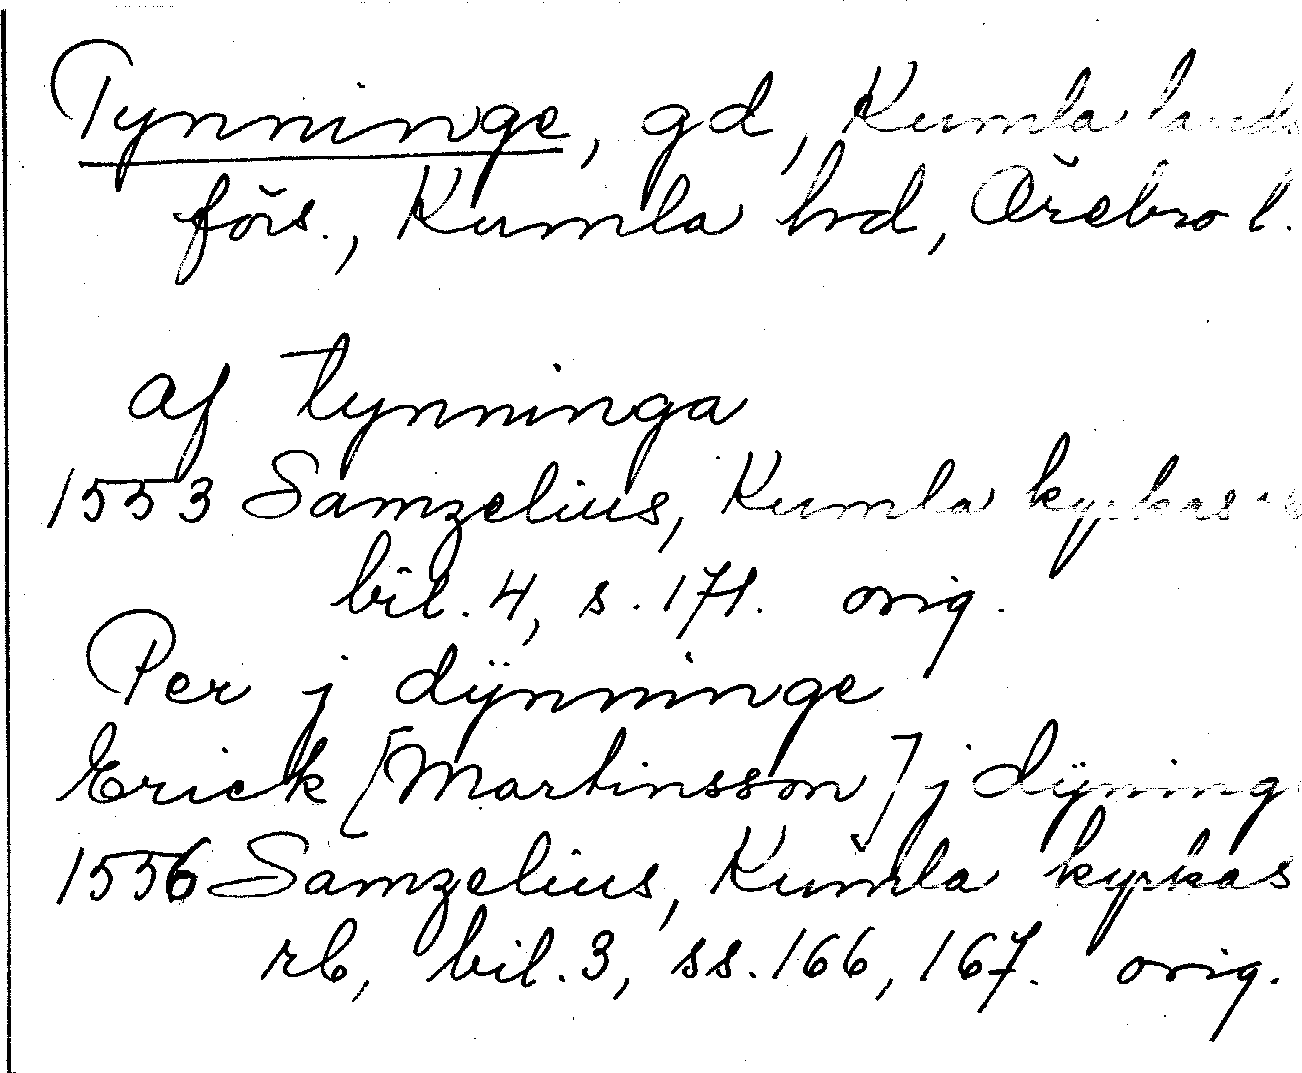 Tynninge, gd, Kumla lands
förs., Kumla hrd, Örebro l.
af tynninga
1553 Samzelius, Kumla kyrkas
bil. 4, s. 171. orig.
Per j dÿnninge
Erick [Martinsson] j dÿning
1556 Samzelius, Kumla kyrkas
rb, bil. 3, ss. 166, 167. orig.